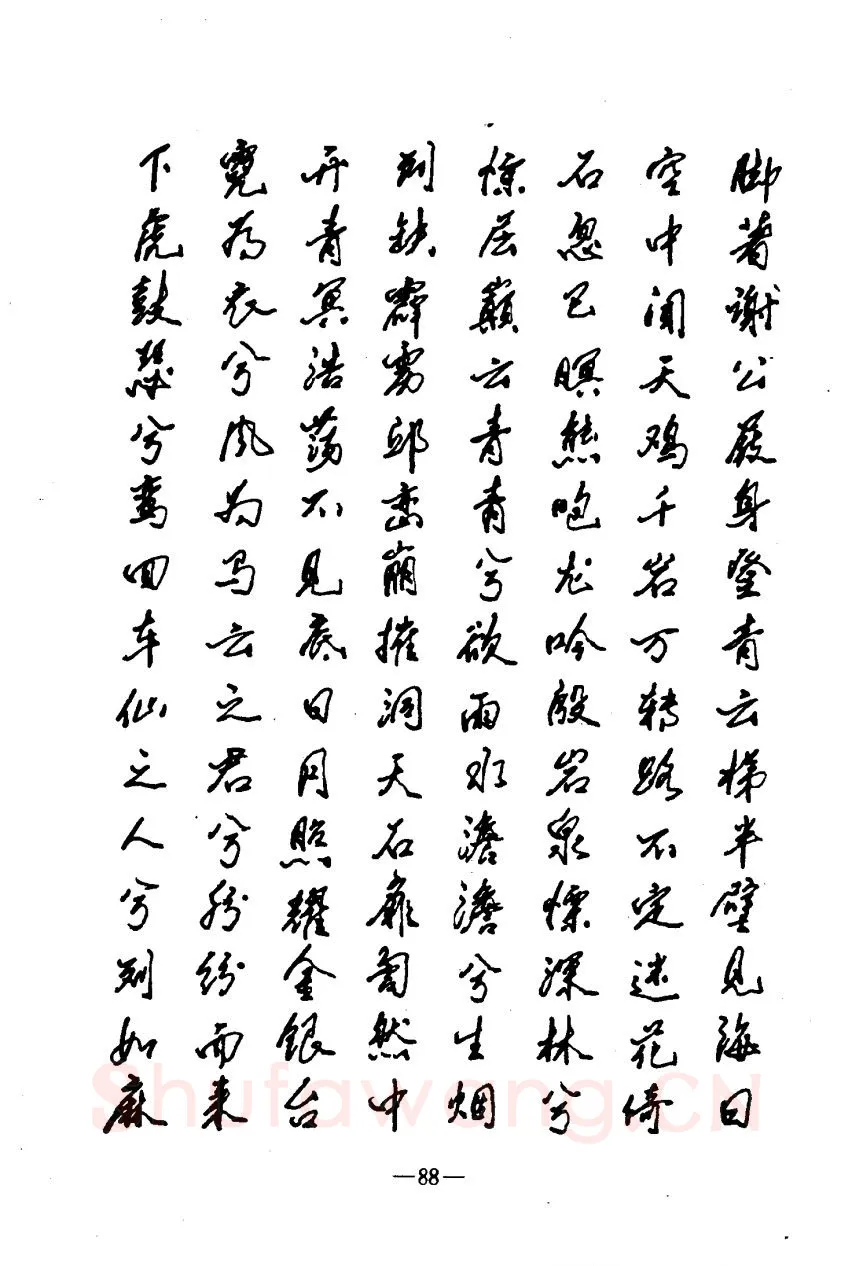 脚著谢公屐身登青云梯半壁见海日
空中闻天鸡千岩万转路不定迷花倚
石忽已暝熊咆龙吟殷岩泉慄深林兮
惊层巅云青青兮欲雨水澹澹兮生烟
列缺霹雳邱峦崩摧洞天石扉訇然中
开青冥浩荡不见底日月照耀金银台
霓为衣兮风为马云之君兮纷纷而来
下虎鼓瑟兮鸾回车仙之人兮列如麻
Shufawang.CN
—88—